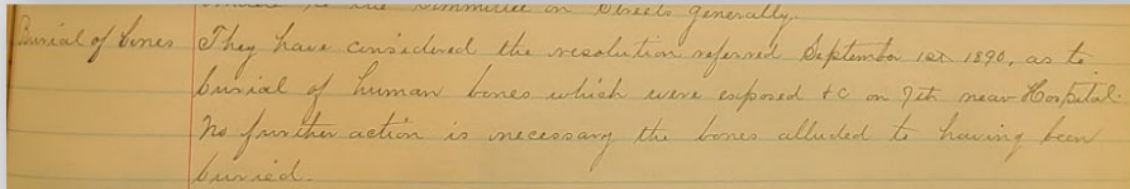 to the Committee on Streets generally.
Burial of bones They have considered the resolution referred September 1st 1890, as to
burial of human bones which were exposed &c on 7th near Hospital.
No further action is necessary the bones alluded to having been
buried.